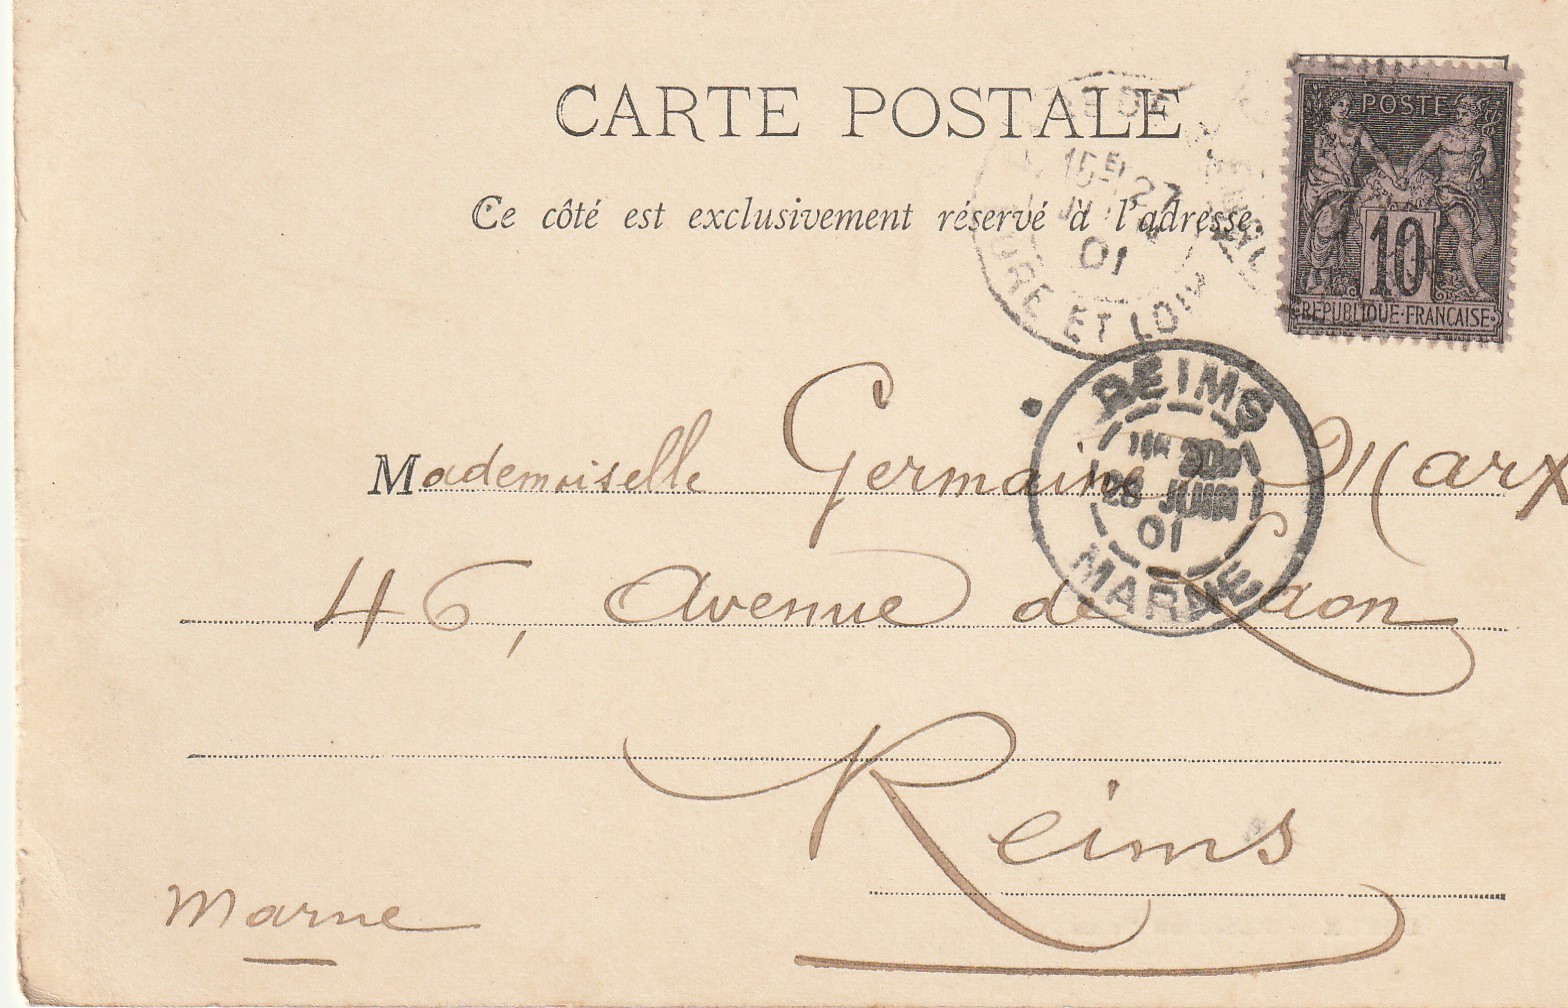 CARTE POSTALE
Ce côté est exclusivement réservé à l'adresse.
POSTE
10
REPUBLIQUE·FRANÇAISE
27
01
EURE ET LOIR
REIMS
28 JUIN
01
MARNE
Mademoiselle Germaine Marx
46, Avenue de Laon
Reims
Marne